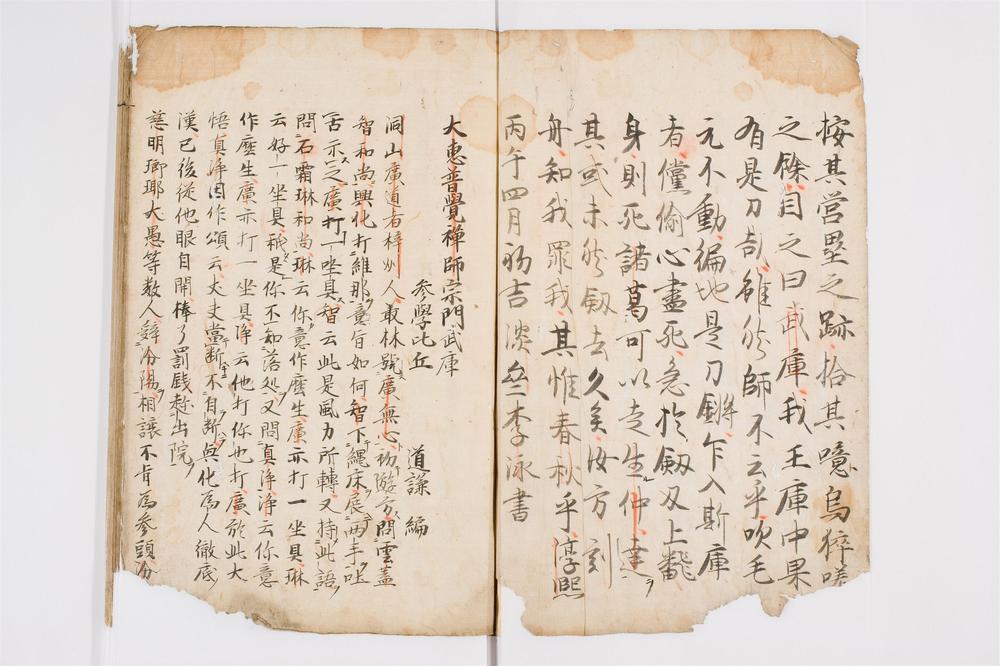 按其營壘之跡拾其噫烏猝嗟
之餘目之曰武庫我王庫中果
有是刀劄雖然師不云乎吹毛
元不動徧地是刀鎗乍入斯庫
者儻偷心盡死急於劔刃上翻
身則死諸葛可以走生仲達
其或未然劔去久矣汝方刻
舟知我罪我其惟春秋乎淳熙
丙午四月初吉淡齋李泳書
大惠普覺禪師宗門武庫
參學比丘 道謙 編
洞山廣道者梓州人叢林號廣無心初遊方問雲蓋
智和尚興化打維那意旨如何智下繩床展兩手吐
舌示之廣打一坐具智云此是風力所轉又持此語
問石霜琳和尚琳云你意作麼生廣亦打一坐具琳
云好一坐具秖是你不知落処又問真淨淨云你意
作麼生廣亦打一坐具淨云他打你也打廣於此大
悟真淨因作頌云丈夫當断不自断興化為人徹底
漢已後從他眼自開棒了罰錢趂出院
慈明瑯琊大愚等数人辞汾陽相讓不肯為參頭汾